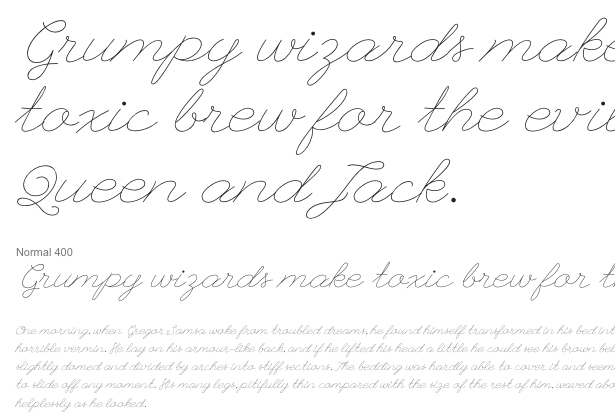 Grumpy wizards make
toxic brew for the evil
Queen and Jack.
Normal 400
Grumpy wizards make toxic brew for
One morning, when Gregor Samsa woke from troubled dreams, he found himself transformed in his bed into
horrible vermin. He lay on his armour-like back, and if he lifted his head a little he could see his brown
slightly domed and divided by arches into stiff sections. The bedding was hardly able to cover it and
to slide off any moment. His many legs, pitifully thin compared with the size of the rest of him, waved
helplessly as he looked.